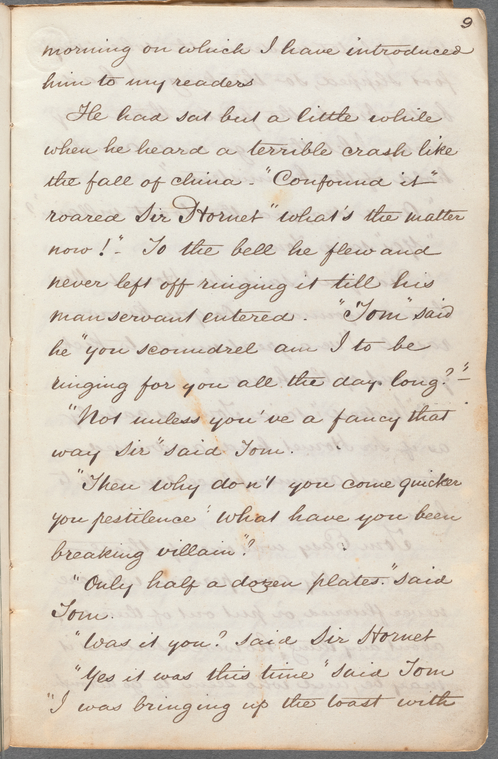 9
morning on which I have introduced
him to my readers
He had sat but a little while
when he heard a terrible crash like
the fall of china - "Confound it"
roared Sir Hornet "what's the matter
now!" - To the bell he flew and
never left off ringing it till his
manservant entered. "Tom" said
he "you scoundrel am I to be
ringing for you all the day long?" -
"Not unless you've a fancy that
way Sir" said Tom.
"Then why don't you come quicker
you pestilence! What have you been
breaking villain"?
"Only half a dozen plates." said
Tom.
"Was it you? said Sir Hornet
"Yes it was this time" said Tom
"I was bringing up the toast with